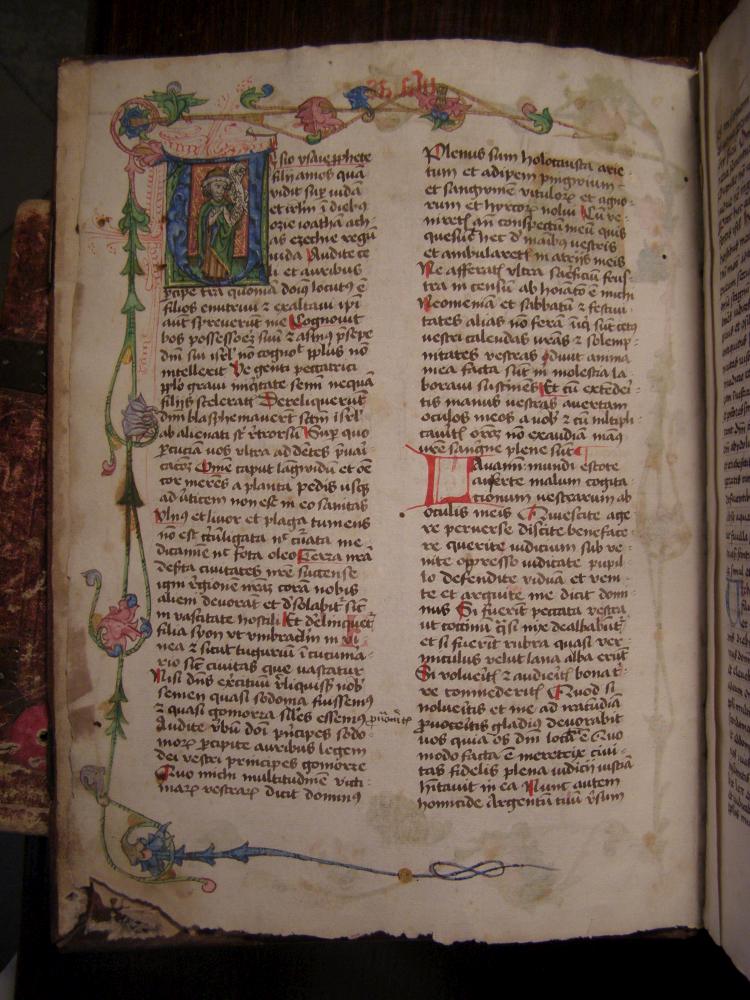 Visio ysaie pphete
filii amos quā
vidit sup iudā
et irlm ī diebꝫ
ozie ioathā ach
as ezechie regū
iuda Audite ce
li et auribus
pcipe tra quoniā dn̄s locutꝰ ē
filios enutriui ⁊ exaltaui ipī
aut spreuerūt me Cognouit
bos possessorē suū ⁊ asinꝰ psepe
dn̄i sui isrl' nō cognoꝰt pplus nō
intellexit Ve genti peccatrici
pplo graui iniqtate semī nequā
filiis sceleratꝭ Dereliquerūt
dn̄m blasphemauerūt scm̄ isrl'
ab alienati st' retrorsū Sup quo
pcuciā vos vltra addētes puari
cacōꝫ Om̄e caput lāgvidū et oē
cor merēs a planta pedis usqꝫ
ad vticem non est in eo sanitas
Vlnꝰ et liuor et plaga tumens
nō est circūligata nec curata me
dicamīe nec fota oleo Terra vrā
des̄ta ciuitates vrē succense
igni regionē vrāꝫ corā vobis
alieni deuorāt et desolabit sic
in vastitate hostili Et delinquet
filia syon vt vmbraclm in vi
nea ⁊ sicut tuguriū ī cucume
rio sic ciuitas que vastatur
Nisi dn̄s exctuū reliquiss nob
semen quasi sodoma fuissemꝰ
⁊ quasi gomorra siles essemꝰ
Audite vbū dn̄i principes sodo
moꝝ pcipite auribus legem
dei vestri principes gomorre
Quo michi multitudinē victi
maꝝ vestraꝝ dicit dominꝰ
Plenus sum holocausta arie
tum et adipem pingwium
et sangwinem vituloꝝ et agno
rum et hyrcoꝝ nolui Cū ve
niretꝭ an̄ conspectū meū quis
quesiuit hec de maībꝰ vestris
et ambularetꝭ in atrijs meis
Ne afferatꝭ vltra sacficiū frus
tra incensū abhoīatō ē michi
Neomeniā et sabbatū ⁊ festiui
tates alias nō ferā iiqi sūt cetꝰ
vestri calendas vrās ⁊ solemp
nitates vestras odiuit anima
mea facta sūt m̄ molesta la
boraui sustinēs Et cū extēderi
tis manus vestras auertam
oculos meos a vob' ⁊ cū mltipli
caueritꝭ orōeꝫ nō exaudiā manꝰ
vre sangwīe plene sūt
Lauami mundi estote
auferte malum cogita
tionum vestrarum ab
oculis meis Quiescite age
re perverse discite beneface
re querite iudicium sub ve
nite oppresso iudicate pupil
lo defendite viduā et veni
te et arguite me dicit domi
nus Si fuerīt peccata vestra
ut coccinū qsi nix dealbabūtꝰ
et si fuerīt rubra quasi ver
miculus velut lana alba erūt
Si volueritꝭ ⁊ audieritꝭ bona tr
re comederitꝭ Quod si
nolueritis et me ad iracūdiā
puocitis gladiꝰ deuorabit
vos quia os dn̄i locutū ē Quo
modo facta ē meretrix ciui
tas fidelis plena iudicij iusticia
hītauit in ea Nunc autem
homicide Argentū tuū v̄sum